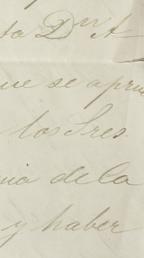 ta Dn A
que se apru
los Sres
ia de la
y haber